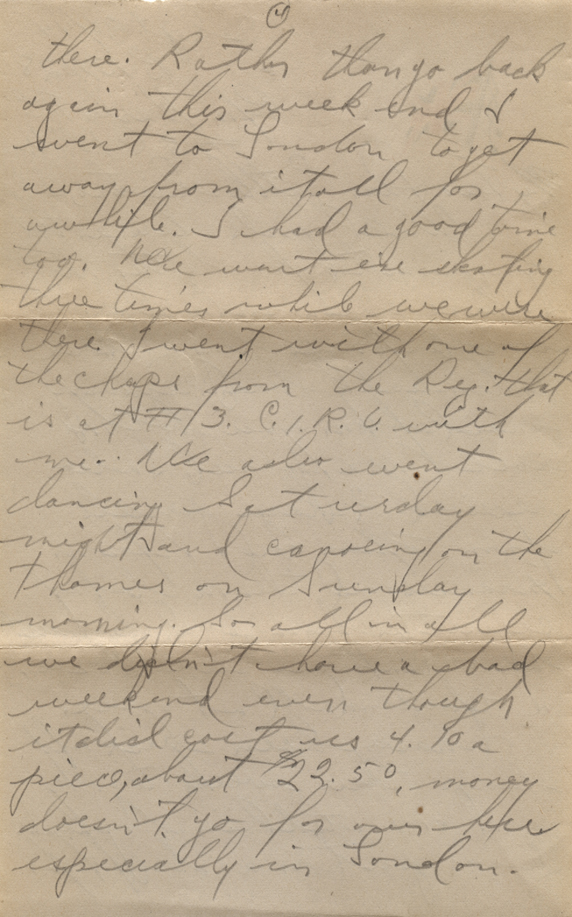 4
there. Rather than go back
again this week end I
went to London to get
away from it all for
awhile. I had a good time
too. We went ice skating
three times while we were
there. I went with one of
the chaps from the Reg. that
is at #3. C.I.R.U. with
me. We also went
dancing Saturday
night and canoeing on the
Thames on Sunday
morning. So all in all
we didn't have a bad
weekend even though
it did cost us 4.10 a
piece, about $22.50, money
doesn't go far over here
especially in London.